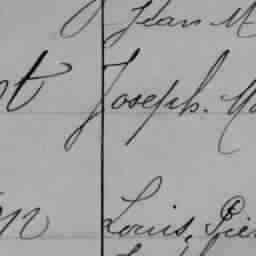 Jean M
t Joseph. Ma
n Louis, Pier